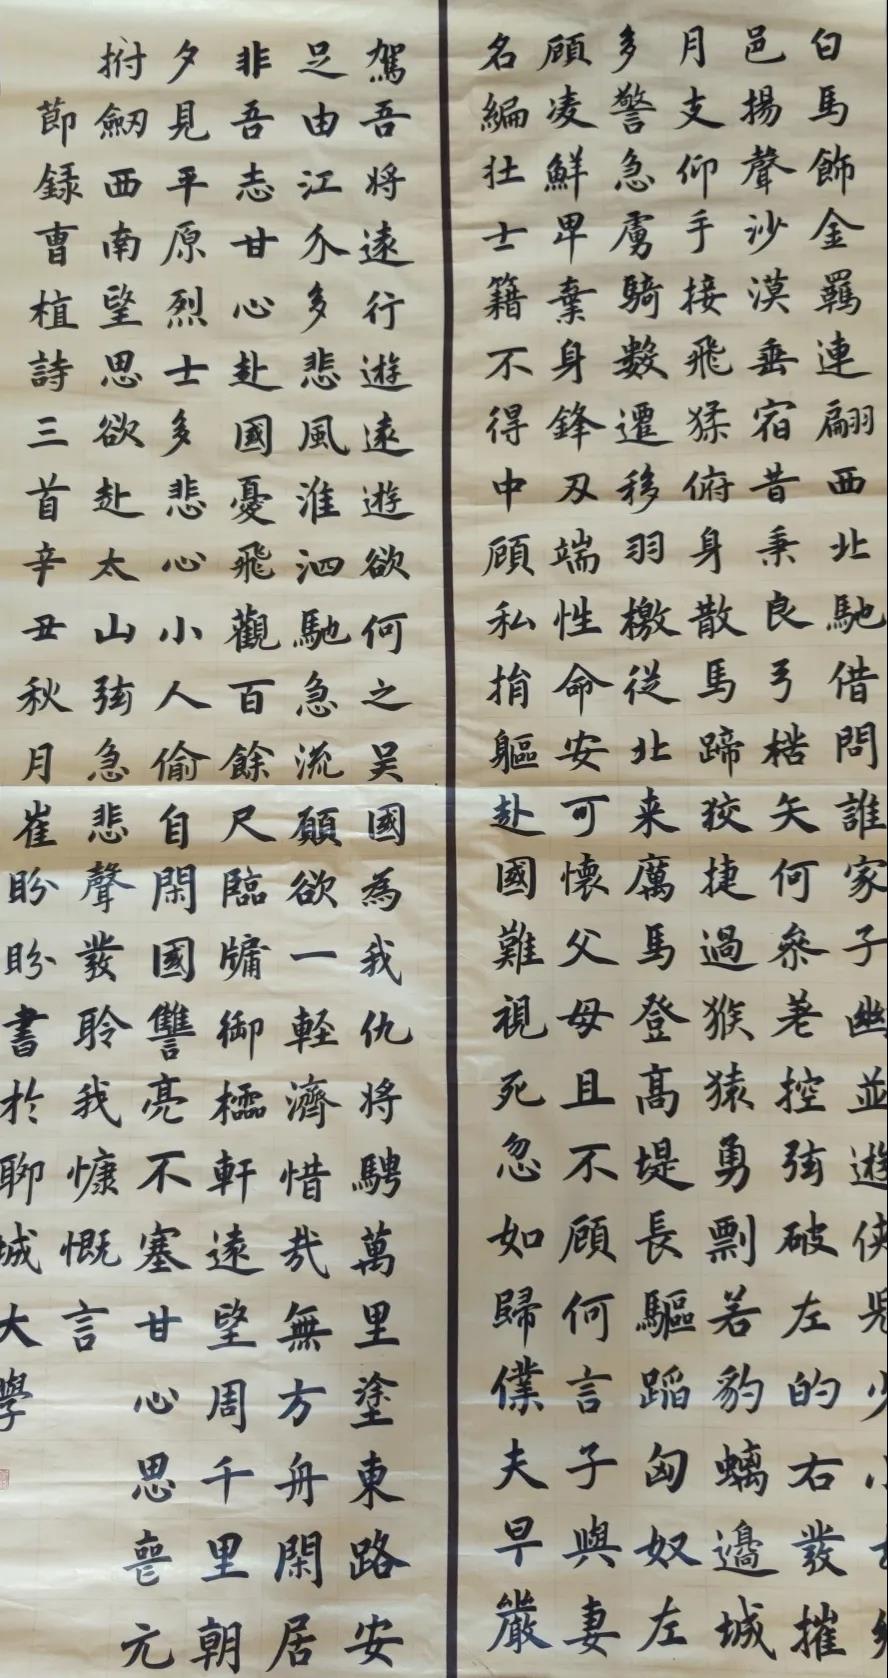 白馬飾金羈連翩西北馳借問誰家子幽並遊俠兒少小去鄉
邑揚聲沙漠垂宿昔秉良弓楛矢何參差控弦破左的右發摧
月支仰手接飛猱俯身散馬蹄狡捷過猴猿勇剽若豹螭邊城
多警急虜騎數遷移羽檄從北来厲馬登高堤長驅蹈匈奴左
顧凌鮮卑棄身鋒刃端性命安可懷父母且不顧何言子與妻
名編壯士籍不得中顧私捐軀赴國難視死忽如歸僕夫早嚴
駕吾將遠行遊遠遊欲何之吴國為我仇將騁萬里塗東路安
足由江介多悲風淮泗馳急流願欲一軽濟惜哉無方舟閑居
非吾志甘心赴國憂飛觀百餘尺臨牖御櫺軒遠望周千里朝
夕見平原烈士多悲心小人偷自閑國讐亮不塞甘心思喪元
拊劒西南望思欲赴太山弦急悲聲發聆我慷慨言
節録曹植詩三首辛丑秋月崔盼盼書於聊城大學